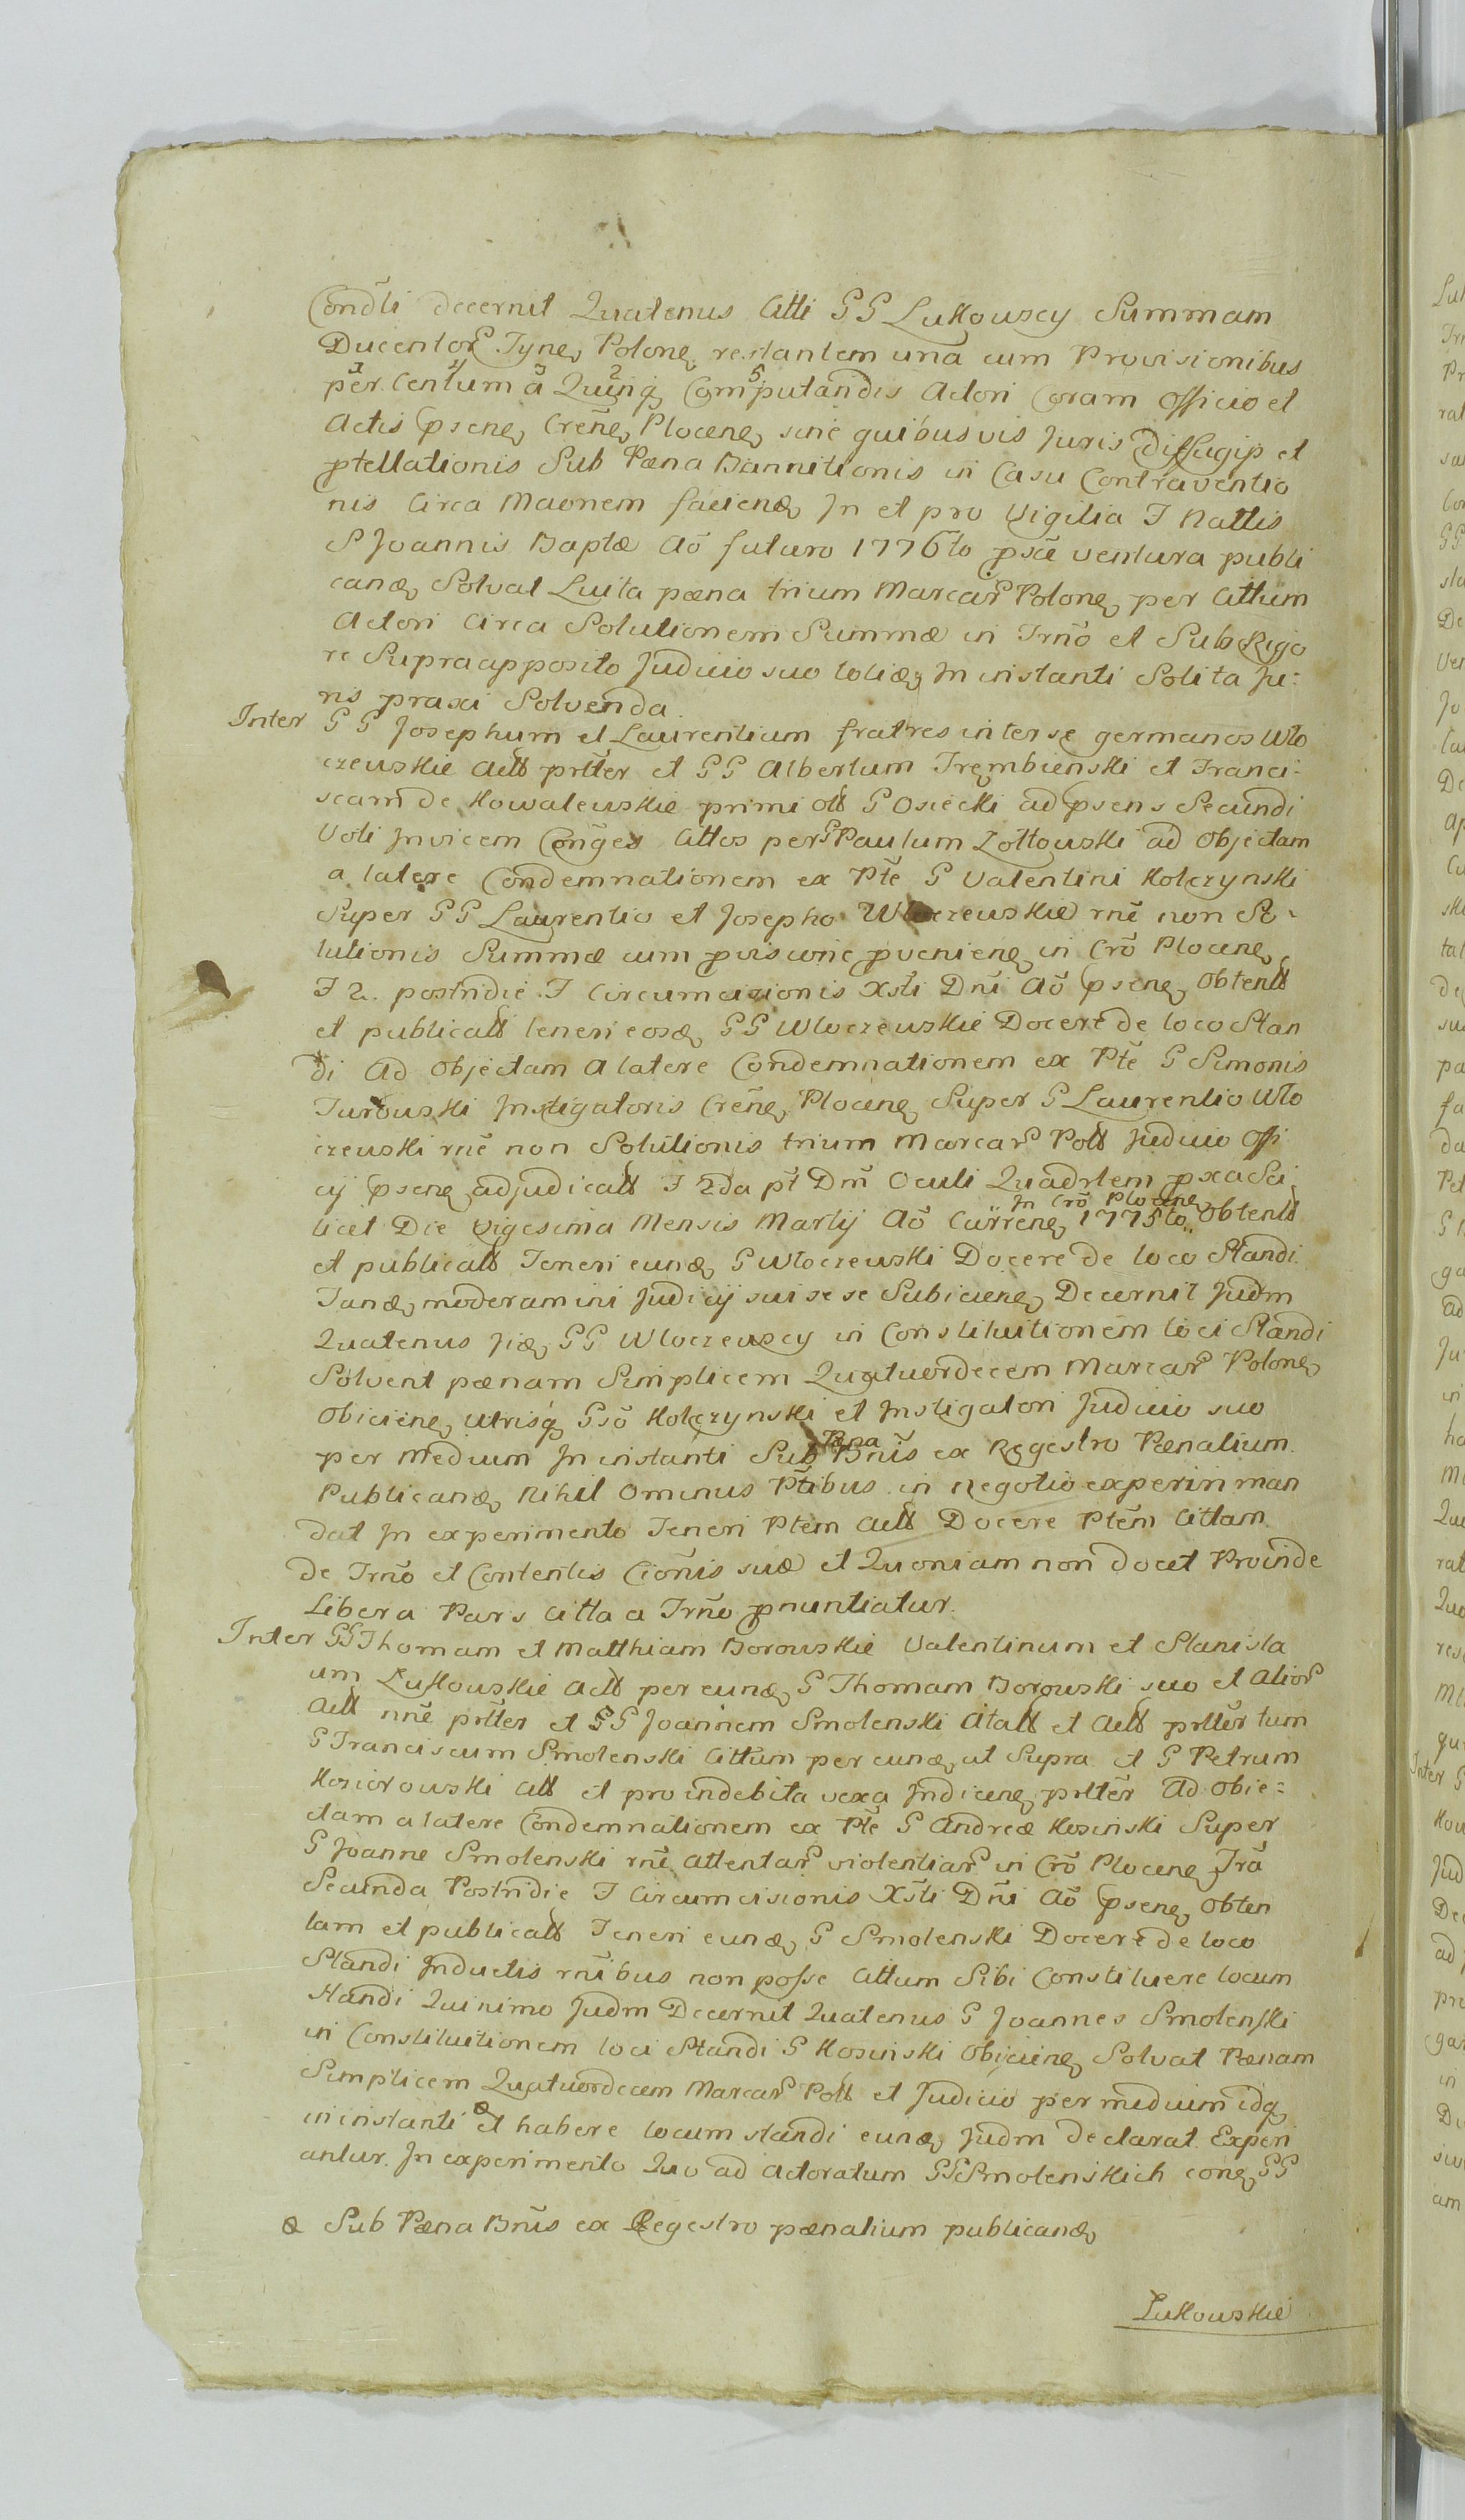 Condti decernit Quatenus Citti GG Lukowscy Summam
Ducentor Tyne Polone restantem una cum Provisionibus
per Centum a Quinq Computandis Actori Coram Officio et
Actis psene Crene Plocene sine quibusvis Juris diffugijs et
ptellationis Sub Pæna Bannitionis in Casu Contraventio
nis Circa Maonem faciene In et pro Vigilia F Nattis
S Joannis Baptæ Aõ futuro 1776to psã ventura publi
canæ Solvat Luita pæna trium Marcar Polone per Cittum
Actori Circa Solutionem Summæ in Trño et Sub Rigo
re Supraapposito Judicio suo toliæ In instanti Solita Ju:
ris praxi Solvenda.
Inter GG Josephum et Laurentium fratres inter se germanos Wło
czewskie Actt prtter et GG Albertum Trembienski et Franci-
scam de Kowalewskie primi ott G Osiecki ad psens Secundi
Voti Invicem Cõnges Cittos per G Paulum Zołtowski ad Objectam
a latere Condemnationem ex Ptẽ G Valentini Kolczynski
Super GG Laurentio et Josepho Włoczewskie rnẽ non So-
lutionis Summæ cum pvisione pveniene in Crõ Plocene
F 2. postridie F Circumcisionis Xsti Dñi Aõ psene Obtentt
et publicatt teneri eosæ GG Wloczewskie Docere de loco Stan
di Ad Objectam a latere Condemnationem ex Ptẽ G Simonis
Turowski Instigatoris Crẽne Plocene Super G Laurentio Wło
czewski rnẽ non Solutionis trium Marcar Pott Judicio Offi
cij psene adjudicatt F 2da pt Dñi Oculi Quadrlem pxa Sci
In Crõ Plocene
licet Die Vigesima Mensis Martij Aõ Currene 1775to Obtentt
et publicatt Teneri eunæ G Wloczewski Docere de loco Standi.
Tanæ moderamini Judicij sui se se Subiciene Decernit Judm
Quatenus jiæ GG Wloczewscy in Constituitionem loci Standi
Solvent pænam Simplicem Quatuordecem Marcar Polone
Obiciene utrisq Gsõ Kolczynski et Instigatori Judicio suo
Pæna
per Medium In instanti Sub Bnĩs ex Regestro Pænalium.
Publicanæ Nihil Ominus Ptibus in negotio experiri man
dat In experimento Teneri Ptem Actt Docere Ptẽm Cittam
de Trño et Contentis Ciõnis suæ et Quoniam non docet Proinde
Libera Pars Citta a Trño pnuntiatur.
Inter GG Thomam et Matthiam Borowskie Valentinum et Stanisla
um Łukowskie Actt per eunæ G Thomam Borowski suo et Alior
Actt nnẽ prtter et GG Joannem Smolenski Citatt et Actt prtter tum
G Franciscum Smolenski Cittum per eunæ ut Supra et G Petrum
Koziorowski Citt et pro indebita vexa Indicene prtter Ad Obie=
ctam a latere Condemnationem ex Ptẽ G Andreæ Kosinski Super
G Joanne Smolenski rnẽ attentar violentiar in Crõ Plocene Frã
Secunda Postridie F Circumcisionis Xsti Dñi Aõ psene Obten
tam et publicatt Teneri eunæ G Smolenski Docere de loco
Standi Inductis rnĩbus non posse Cittum Sibi Constituere locum
Standi Quinimo Judm Decernit Quatenus G Joannes Smolenski
in Constituitionem loci Standi G Kosinski Obiciene Solvat Pænam
Simplicem Quatuordecem Marcar Pott et Judicio per medium idq
in instanti et habere locum standi eunæ Judm declarat. Experi
antur. In experimento Quo ad Actoratum GG Smolenskich cone GG
Sub Pæna Bnĩs ex Regestro pænalium publicanæ
Łukowskie